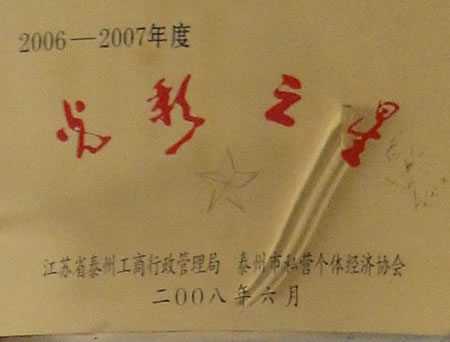 2006—2007年度
光彩之星
江苏省泰州工商行政管理局 泰州市私营个体经济协会
二00八年六月